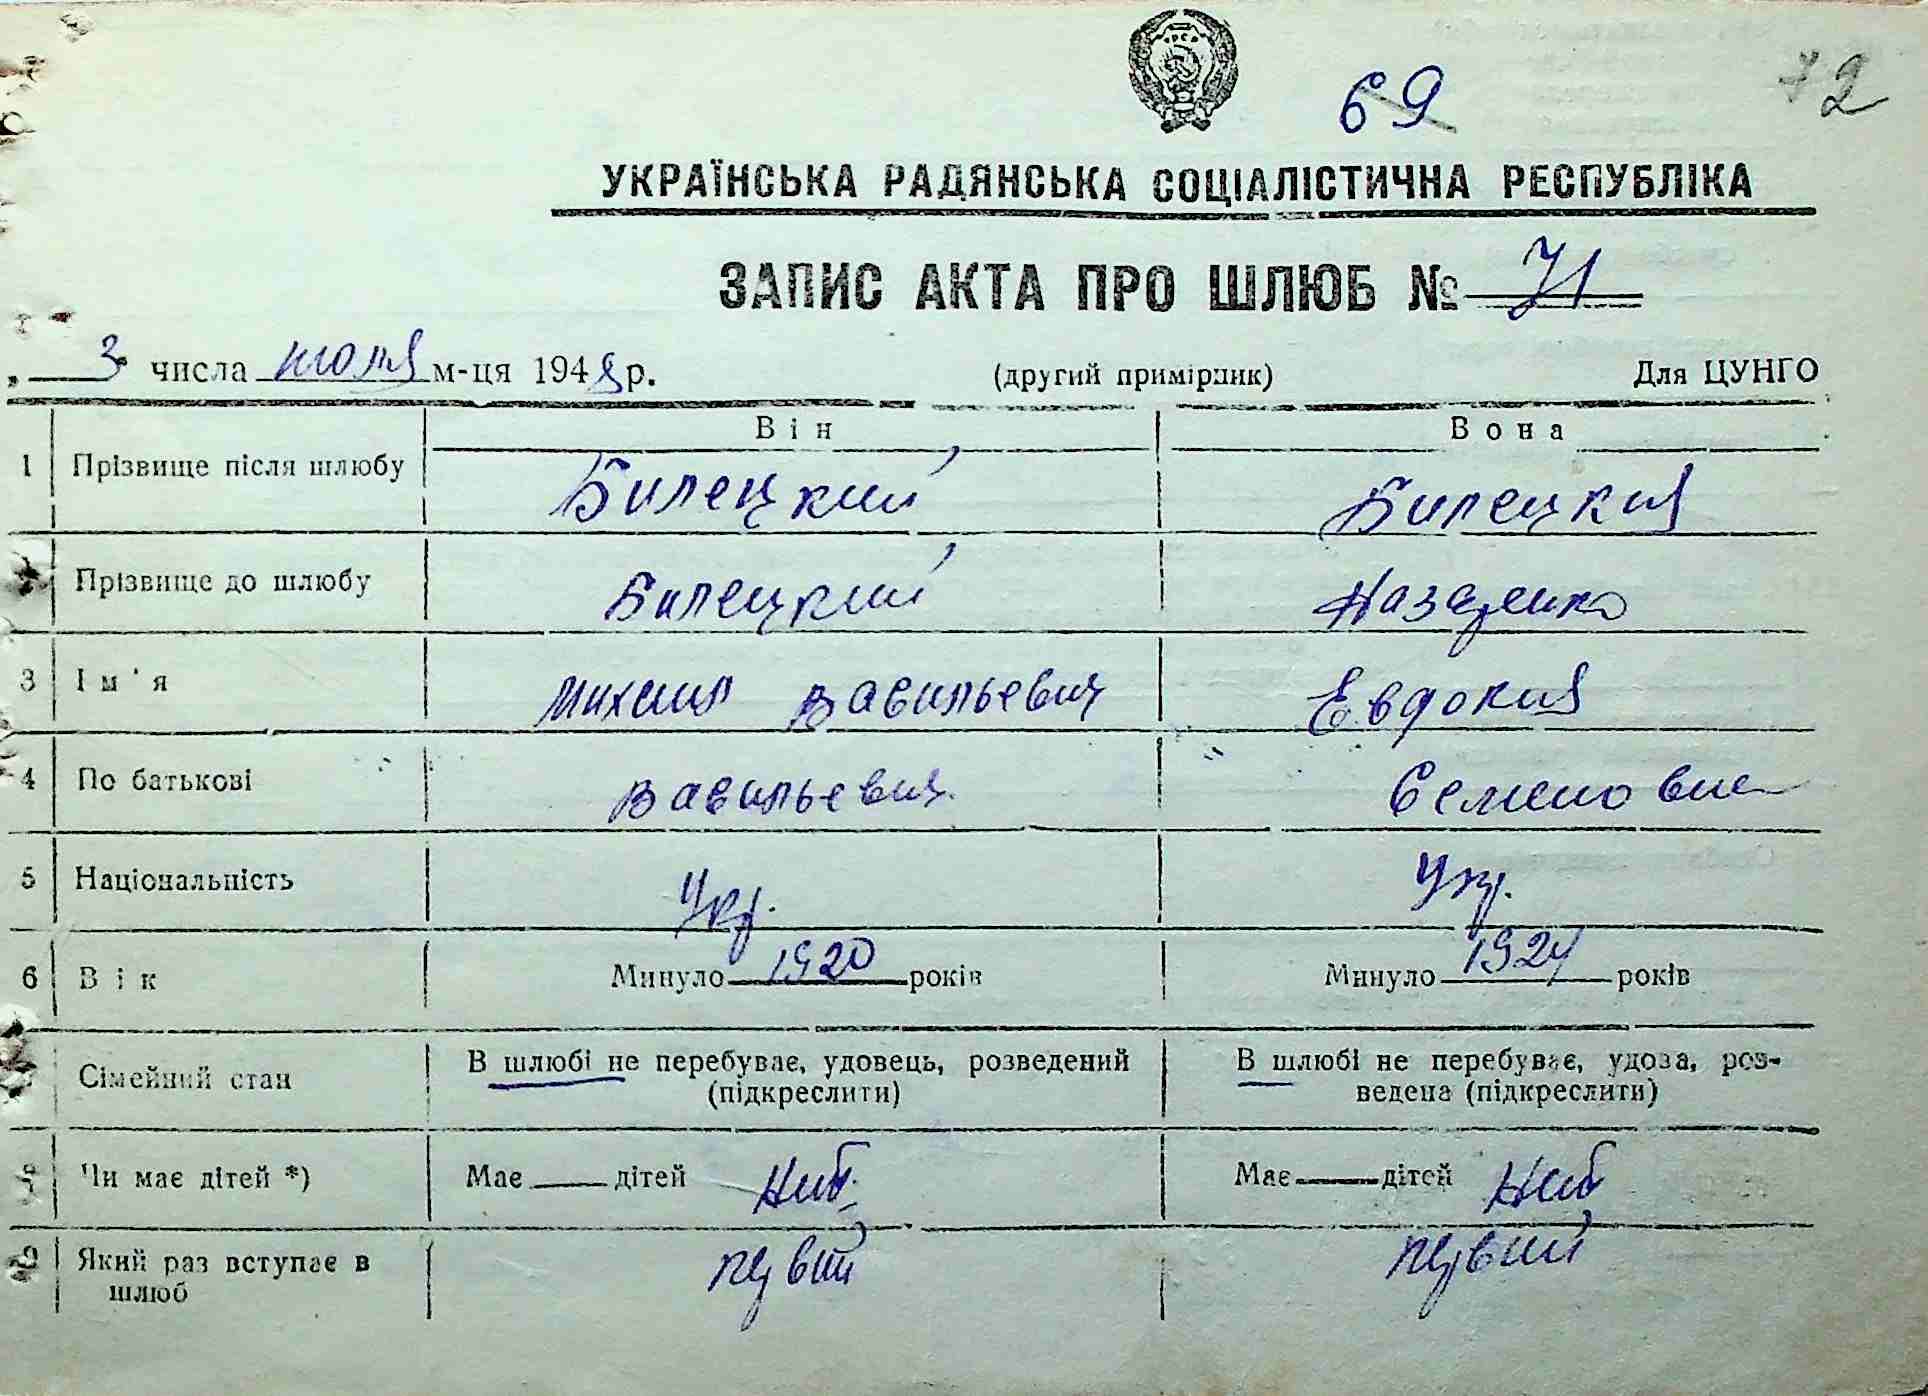 УРСР
69
72
УКРАЇНСЬКА РАДЯНСЬКА СОЦІАЛІСТИЧНА РЕСПУБЛІКА
ЗАПИС АКТА ПРО ШЛЮБ № 71
„ 3 числа июля м-ця 1948 р. (другий примірник) Для ЦУНГО
Він Вона
1 Прізвище після шлюбу Билецкий Билецкия
2 Прізвище до шлюбу Билецкий Назаренко
3 Ім'я Михаил Васильевич Евдокия
4 По батькові Васильевич Семеновна
5 Національність Укр. Укр.
6 Вік Минуло 1920 років Минуло 1924 років
7 Сімейний стан В шлюбі не перебуває, удовець, розведений В шлюбі не перебуває, удова, роз-
(підкреслити) ведена (підкреслити)
8 Чи має дітей *) Має дітей Має дітей
9 Який раз вступає в первий первий
шлюб